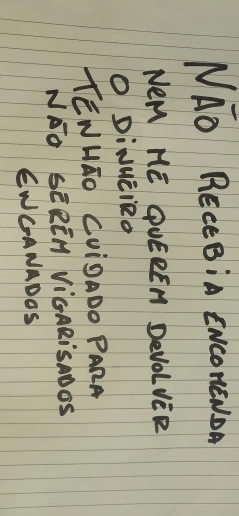 NÃO RECEBIA ENCOMENDA
NEM ME QUEREM DEVOLVER
O DINHEIRO
TENHÃO CUIDADO PARA
NÃO SEREM VIGARISADOS
ENGANADOS